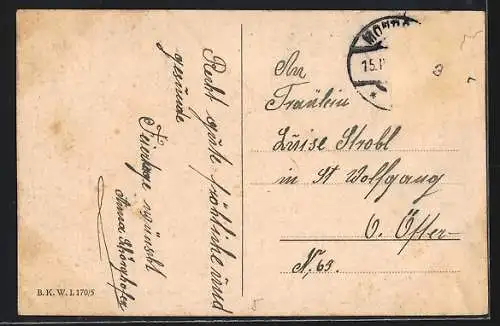 Recht gute fröhliche und
gesunde
Feiertage wünscht
Anna
MOND
15.
An
Fräulein
Luise Strobl
in St Wolfgang
O. Öster
N. 63.
B. K. W. I. 170/5